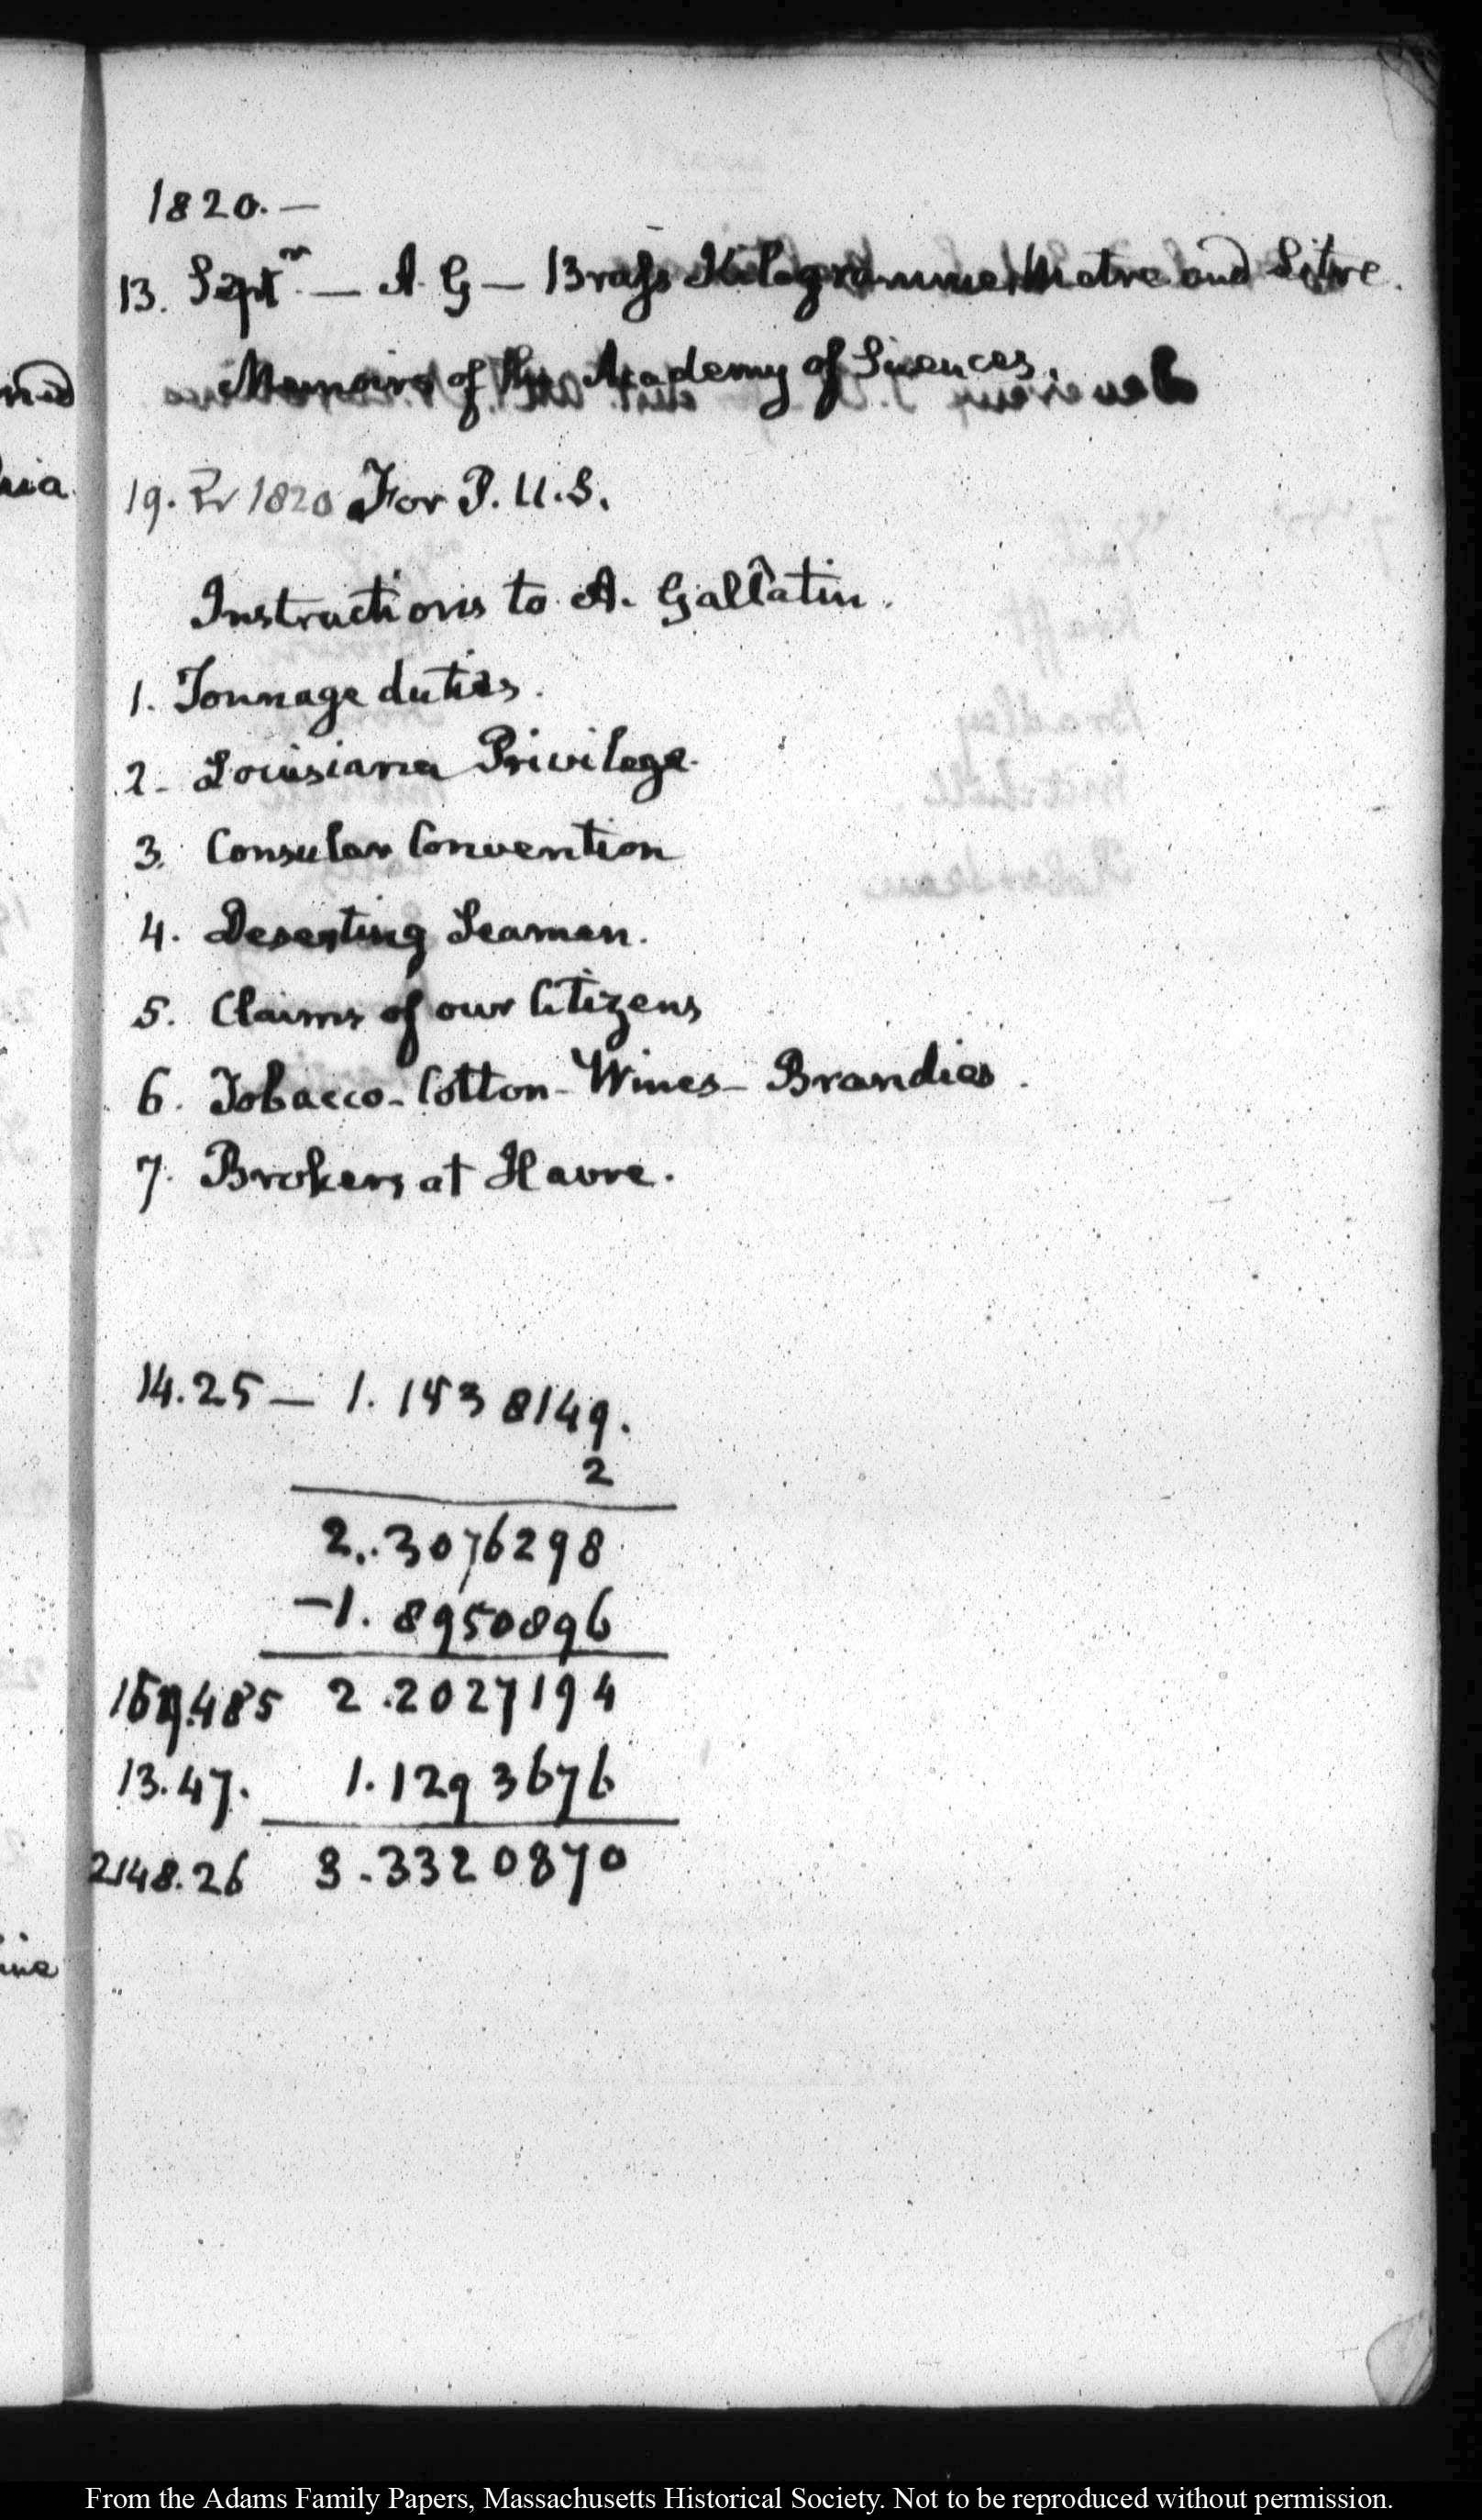 1820.—
13. Septr. — A. G — Brass Kilogramme, Metre and Litre.
Memoirs of the Academy of Sciences.
19. 1820 For P. U. S.
Instructions to A. Gallatin.
1. Tonnage duties.
2. Louisiana Privilege.
3. Consular Convention
4. Deserting Seamen.
5. Claims of our Citizens
6. Tobacco- Cotton- Wines- Brandies.
7. Brokers at Havre.
14.25 — 1.1538149.
2
2.3076298
-1.8950896
159.485 2.2027194
13.47. 1.1293676
2148.26 3.3320870
From the Adams Family Papers, Massachusetts Historical Society. Not to be reproduced without permission.